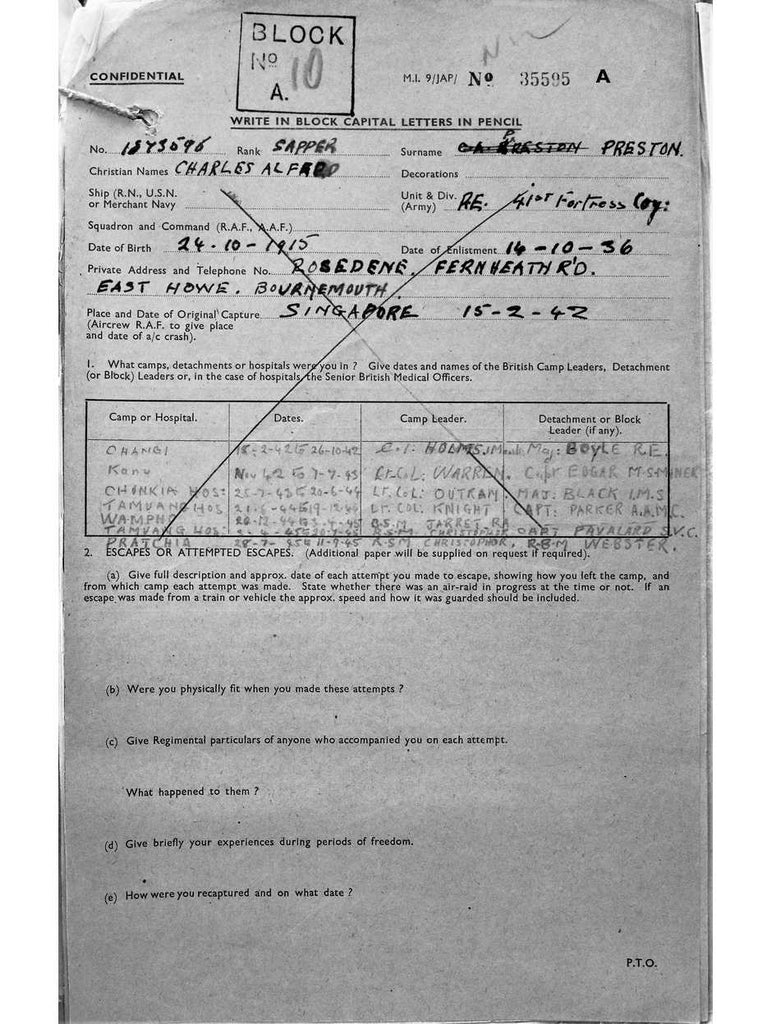 BLOCK
Nº 10
A.
CONFIDENTIAL
M.I. 9/JAP/ Nº 35595 A
WRITE IN BLOCK CAPITAL LETTERS IN PENCIL
No. 1873696 Rank SAPPER Surname PRESTON.
Christian Names CHARLES ALFRED Decorations
Ship (R.N., U.S.N. or Merchant Navy
Unit & Div. (Army) RE. 41st Fortress Coy:
Squadron and Command (R.A.F., A.A.F.)
Date of Birth 24-10-1915 Date of Enlistment 14-10-36
Private Address and Telephone No. ROSEDENE, FERNHEATH R'D.
EAST HOWE. BOURNEMOUTH.
Place and Date of Original Capture SINGAPORE 15-2-42
(Aircrew R.A.F. to give place
and date of a/c crash).
1. What camps, detachments or hospitals were you in ? Give dates and names of the British Camp Leaders, Detachment
(or Block) Leaders or, in the case of hospitals, the Senior British Medical Officers.
Camp or Hospital. Dates. Camp Leader. Detachment or Block Leader (if any).
CHANGI 15-2-42 to 26-10-42 HOLMS, Maj: BOYLE R.E.
Kanu Nov 42 to 7-7-43 Lt. Col: WARREN. Capt EDGAR
CHONKIA HOS: LT. COL: OUTRAM MAJ: BLACK I.M.S
TAMUANG HOS: LT. COL: KNIGHT CAPT: PARKER A.A.M.C.
WAMPHO JARRET. RA
TAMUANG HOS: CAPT PAVALARD S.V.C.
PRATCHIA 11-9-45 RSM CHRISTOPHER. WEBSTER.
2. ESCAPES OR ATTEMPTED ESCAPES. (Additional paper will be supplied on request if required).
(a) Give full description and approx. date of each attempt you made to escape, showing how you left the camp, and
from which camp each attempt was made. State whether there was an air-raid in progress at the time or not. If an
escape was made from a train or vehicle the approx. speed and how it was guarded should be included.
(b) Were you physically fit when you made these attempts ?
(c) Give Regimental particulars of anyone who accompanied you on each attempt.
What happened to them ?
(d) Give briefly your experiences during periods of freedom.
(e) How were you recaptured and on what date ?
P.T.O.